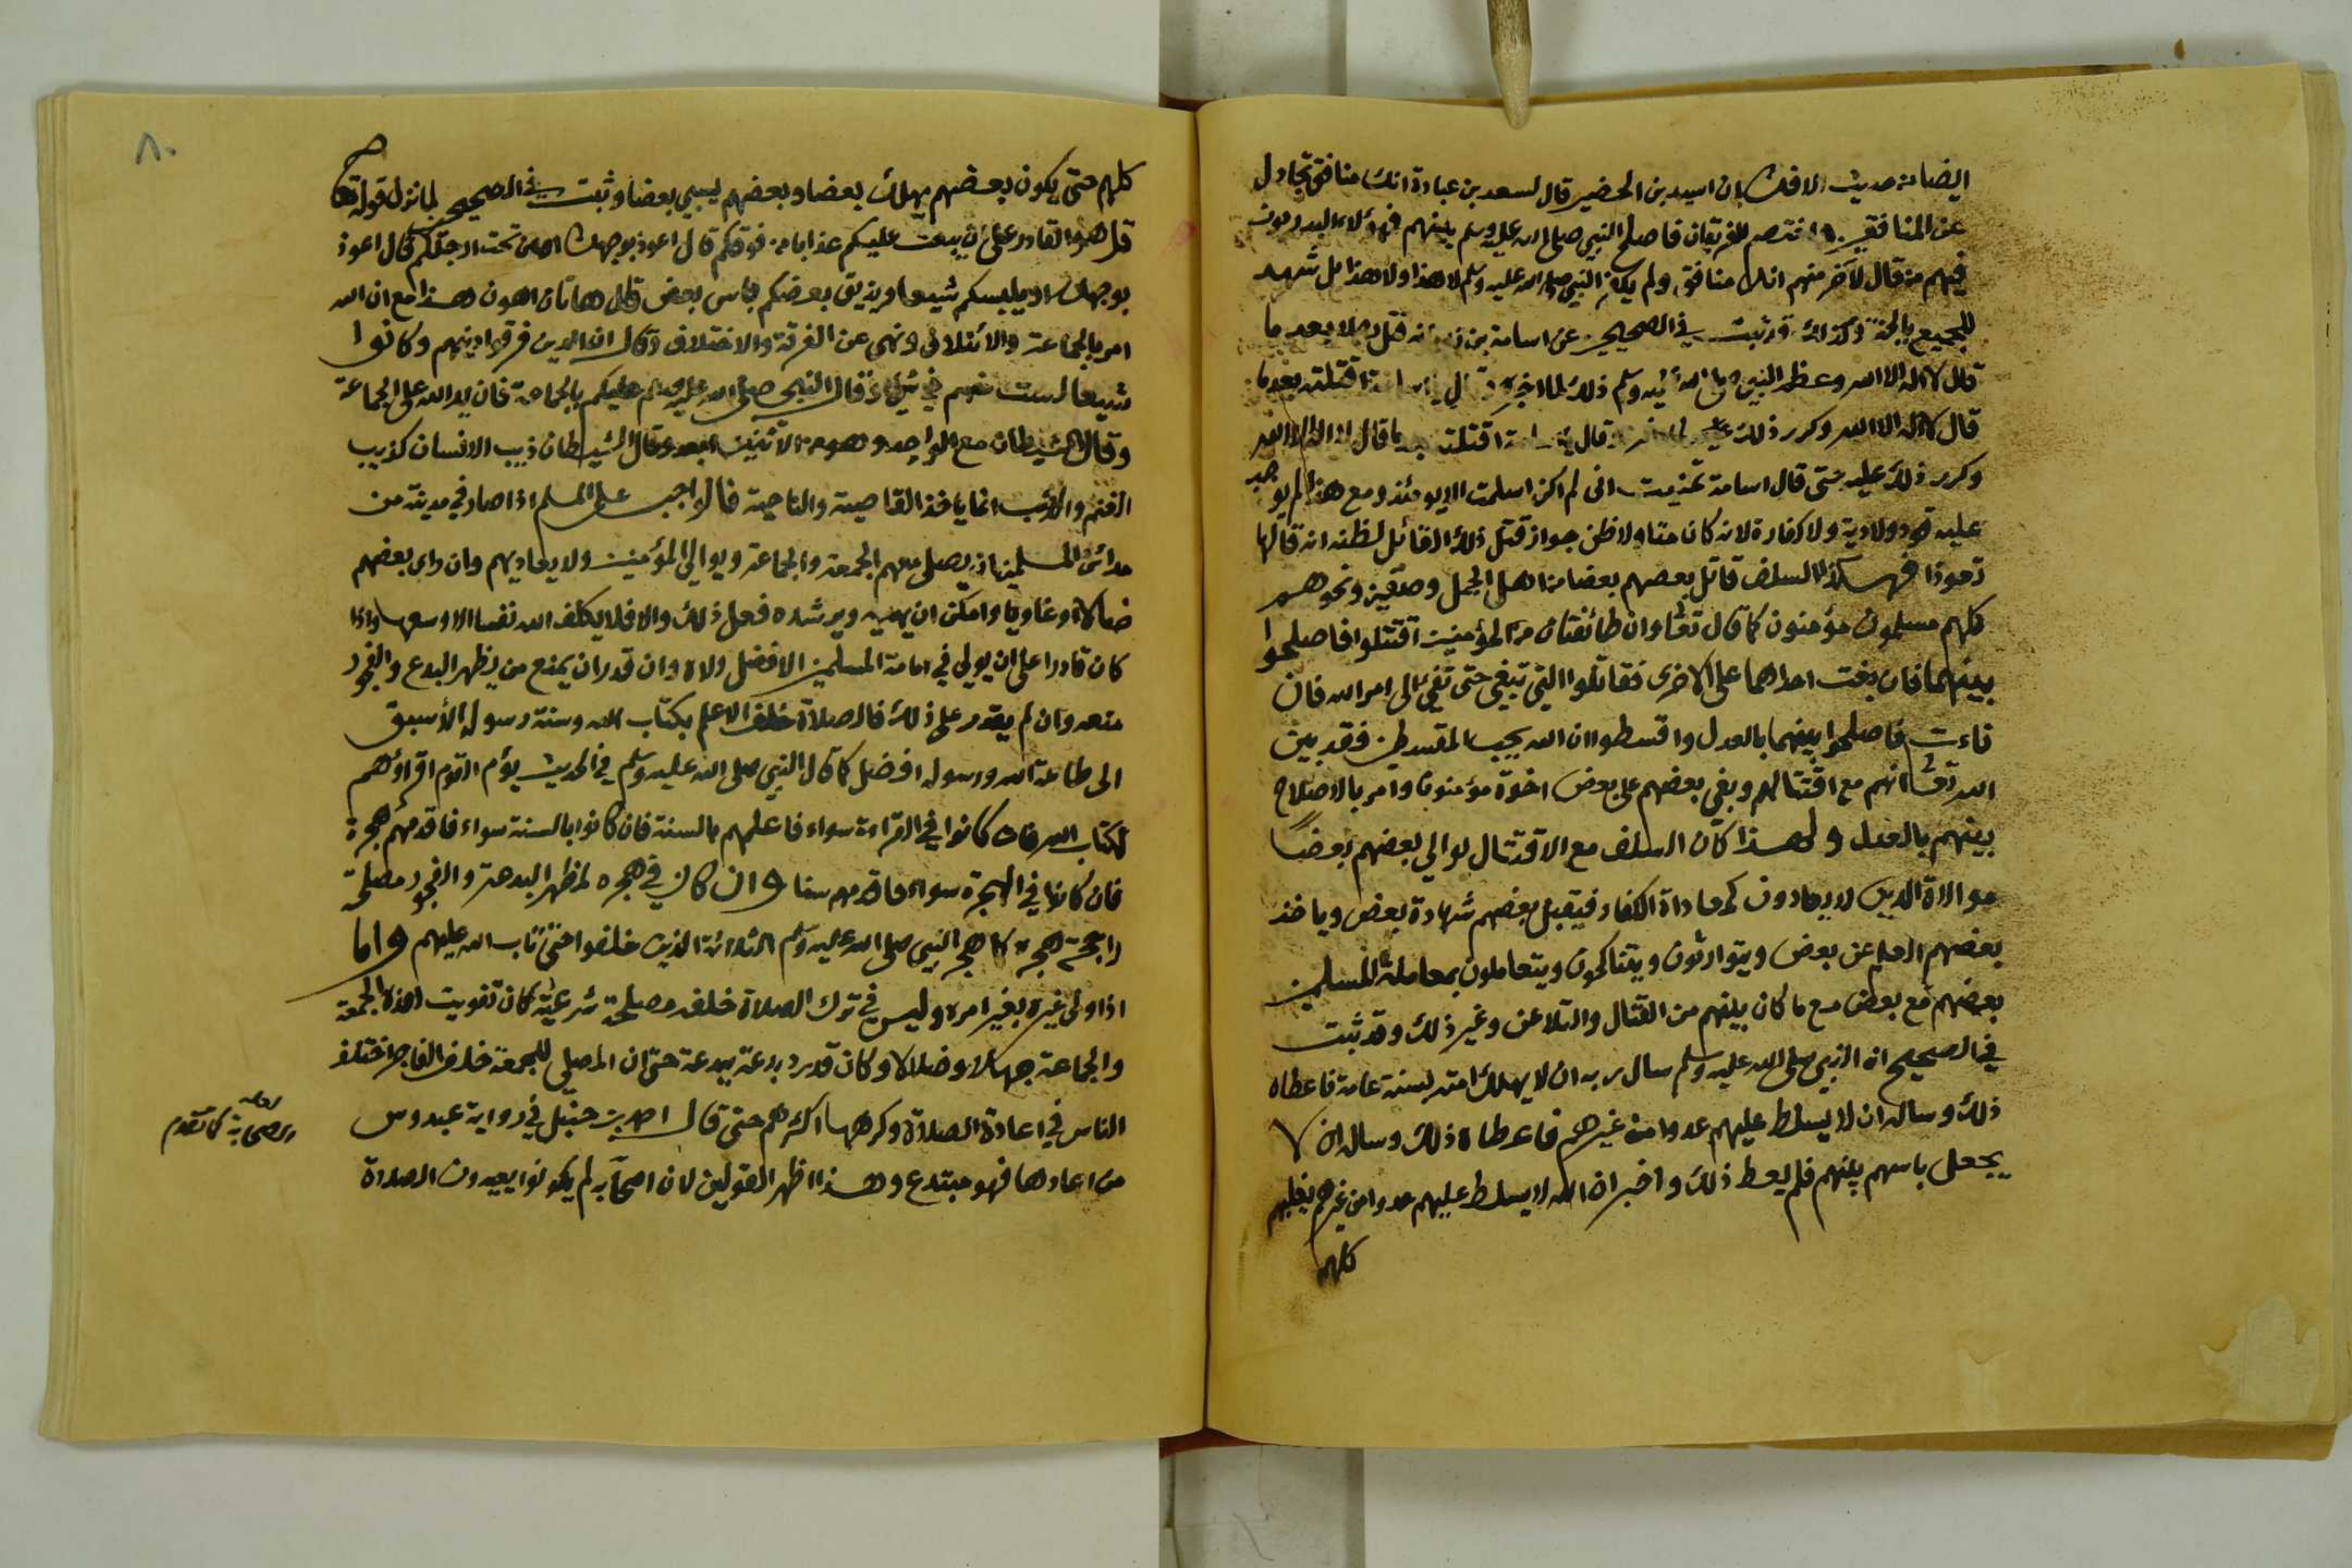 ايضا من حديث الافك ان اسيد بن الحضير قال لسعد بن عبادة انك منافق تجادل
عن المنافقين واختصم الفريقان فاصلح النبي صلى الله عليه وسلم بينهم فهؤلاء البدريون
فيهم من قال لآخر منهم انك منافق ولم يكفر النبي صلى الله عليه وسلم لا هذا ولا هذا بل شهد
للجميع بالجنة وكذلك قد ثبت في الصحيحين عن اسامة بن زيد انه قتل رجلا بعد ما
قال لا اله الا الله وعظم النبي صلى الله عليه وسلم ذلك لما اخبره وقال يا اسامة اقتلته بعد ما
قال لا اله الا الله وكرر ذلك عليه قال يا اسامة اقتلته بعد ما قال لا اله الا الله
وكرر ذلك عليه حتى قال اسامة تمنيت اني لم اكن اسلمت الا يومئذ ومع هذا لم يوجب
عليه قود ولا دية ولا كفارة لانه كان متاولا ظن جواز قتل ذلك القائل لظنه انه قالها
تعوذا فهكذا السلف قاتل بعضهم بعضا من اهل الجمل وصفين ونحوهم
كلهم مسلمون مؤمنون كما قال تعالى وان طائفتان من المؤمنين اقتتلوا فاصلحوا
بينهما فان بغت احداهما على الاخرى فقاتلوا التي تبغي حتى تفيئ الى امر الله فان
فاءت فاصلحوا بينهما بالعدل واقسطوا ان الله يحب المقسطين فقد بين
الله تعالى انهم مع اقتتالهم وبغي بعضهم على بعض اخوة مؤمنون وامر بالاصلاح
بينهم بالعدل ولهذا كان السلف مع الاقتتال يوالي بعضهم بعضا
موالاة الدين لا يعادون كمعاداة الكفار فيقبل بعضهم شهادة بعض وياخذ
بعضهم العلم عن بعض ويتوارثون ويتناكحون ويتعاملون بمعاملة المسلمين
بعضهم مع بعض مع ما كان بينهم من القتال والتلاعن وغير ذلك وقد ثبت
في الصحيح ان النبي صلى الله عليه وسلم سال ربه ان لا يهلك امته بسنة عامة فاعطاه
ذلك وساله ان لا يسلط عليهم عدوا من غيرهم فاعطاه ذلك وساله ان لا
يجعل باسهم بينهم فلم يعط ذلك واخبر ان الله لا يسلط عليهم عدوا من غيرهم يغلبهم
كلهم
٨٠
كلهم حتى يكون بعضهم يهلك بعضا وبعضهم يسبي بعضا وثبت في الصحيح لما نزل قوله
قل هو القادر على ان يبعث عليكم عذابا من فوقكم قال اعوذ بوجهك او من تحت ارجلكم قال اعوذ
بوجهك او يلبسكم شيعا ويذيق بعضكم باس بعض قال هاتان اهون هذا مع ان الله
امر بالجماعة والائتلاف ونهى عن الفرقة والاختلاف وقال ان الذين فرقوا دينهم وكانوا
شيعا لست منهم في شيء وقال النبي صلى الله عليه وسلم عليكم بالجماعة فان يد الله على الجماعة
وقال الشيطان مع الواحد وهو من الاثنين ابعد وقال الشيطان ذيب الانسان كذيب
الغنم والذئب انما ياخذ القاصية والناحية فالواجب على المسلم اذا صار في مدينة من
مدائن المسلمين ان يصلي معهم الجمعة والجماعة ويوالي المؤمنين ولا يعاديهم وان راى بعضهم
ضالا او غاويا وامكن ان يهديه ويرشده فعل ذلك والا فلا يكلف الله نفسا الا وسعها واذا
كان قادرا على ان يولي في امامة المسلمين الافضل ولاه وان قدر ان يمنع من يظهر البدع والفجور
منعه وان لم يقدر على ذلك فالصلاة خلف الاعلم بكتاب الله وسنة رسوله الأسبق
الى طاعة الله ورسوله افضل كما قال النبي صلى الله عليه وسلم في الحديث يؤم القوم اقرؤهم
لكتاب الله فان كانوا في القراءة سواء فاعلمهم بالسنة فان كانوا بالسنة سواء فاقدمهم هجرة
فان كانوا في الهجرة سواء فاقدمهم سنا وان كان في هجره لمظهر البدعة والفجور مصلحة
راجحة هجره كما هجر النبي صلى الله عليه وسلم الثلاثة الذين خلفوا حتى تاب الله عليهم واما
اذا ولي غيره بغير امره وليس في ترك الصلاة خلفه مصلحة شرعية كان تفويت هذه الجمعة
والجماعة جهلا وضلالا وكان قد رد بدعة ببدعة حتى ان المصلي للجمعة خلف الفاجر اختلف
الناس في اعادة الصلاة وكرهها اكثرهم حتى قال احمد بن حنبل في رواية عبدوس
من اعادها فهو مبتدع وهذا اظهر القولين لان الصحابة لم يكونوا يعيدون الصلاة
كما تقدم